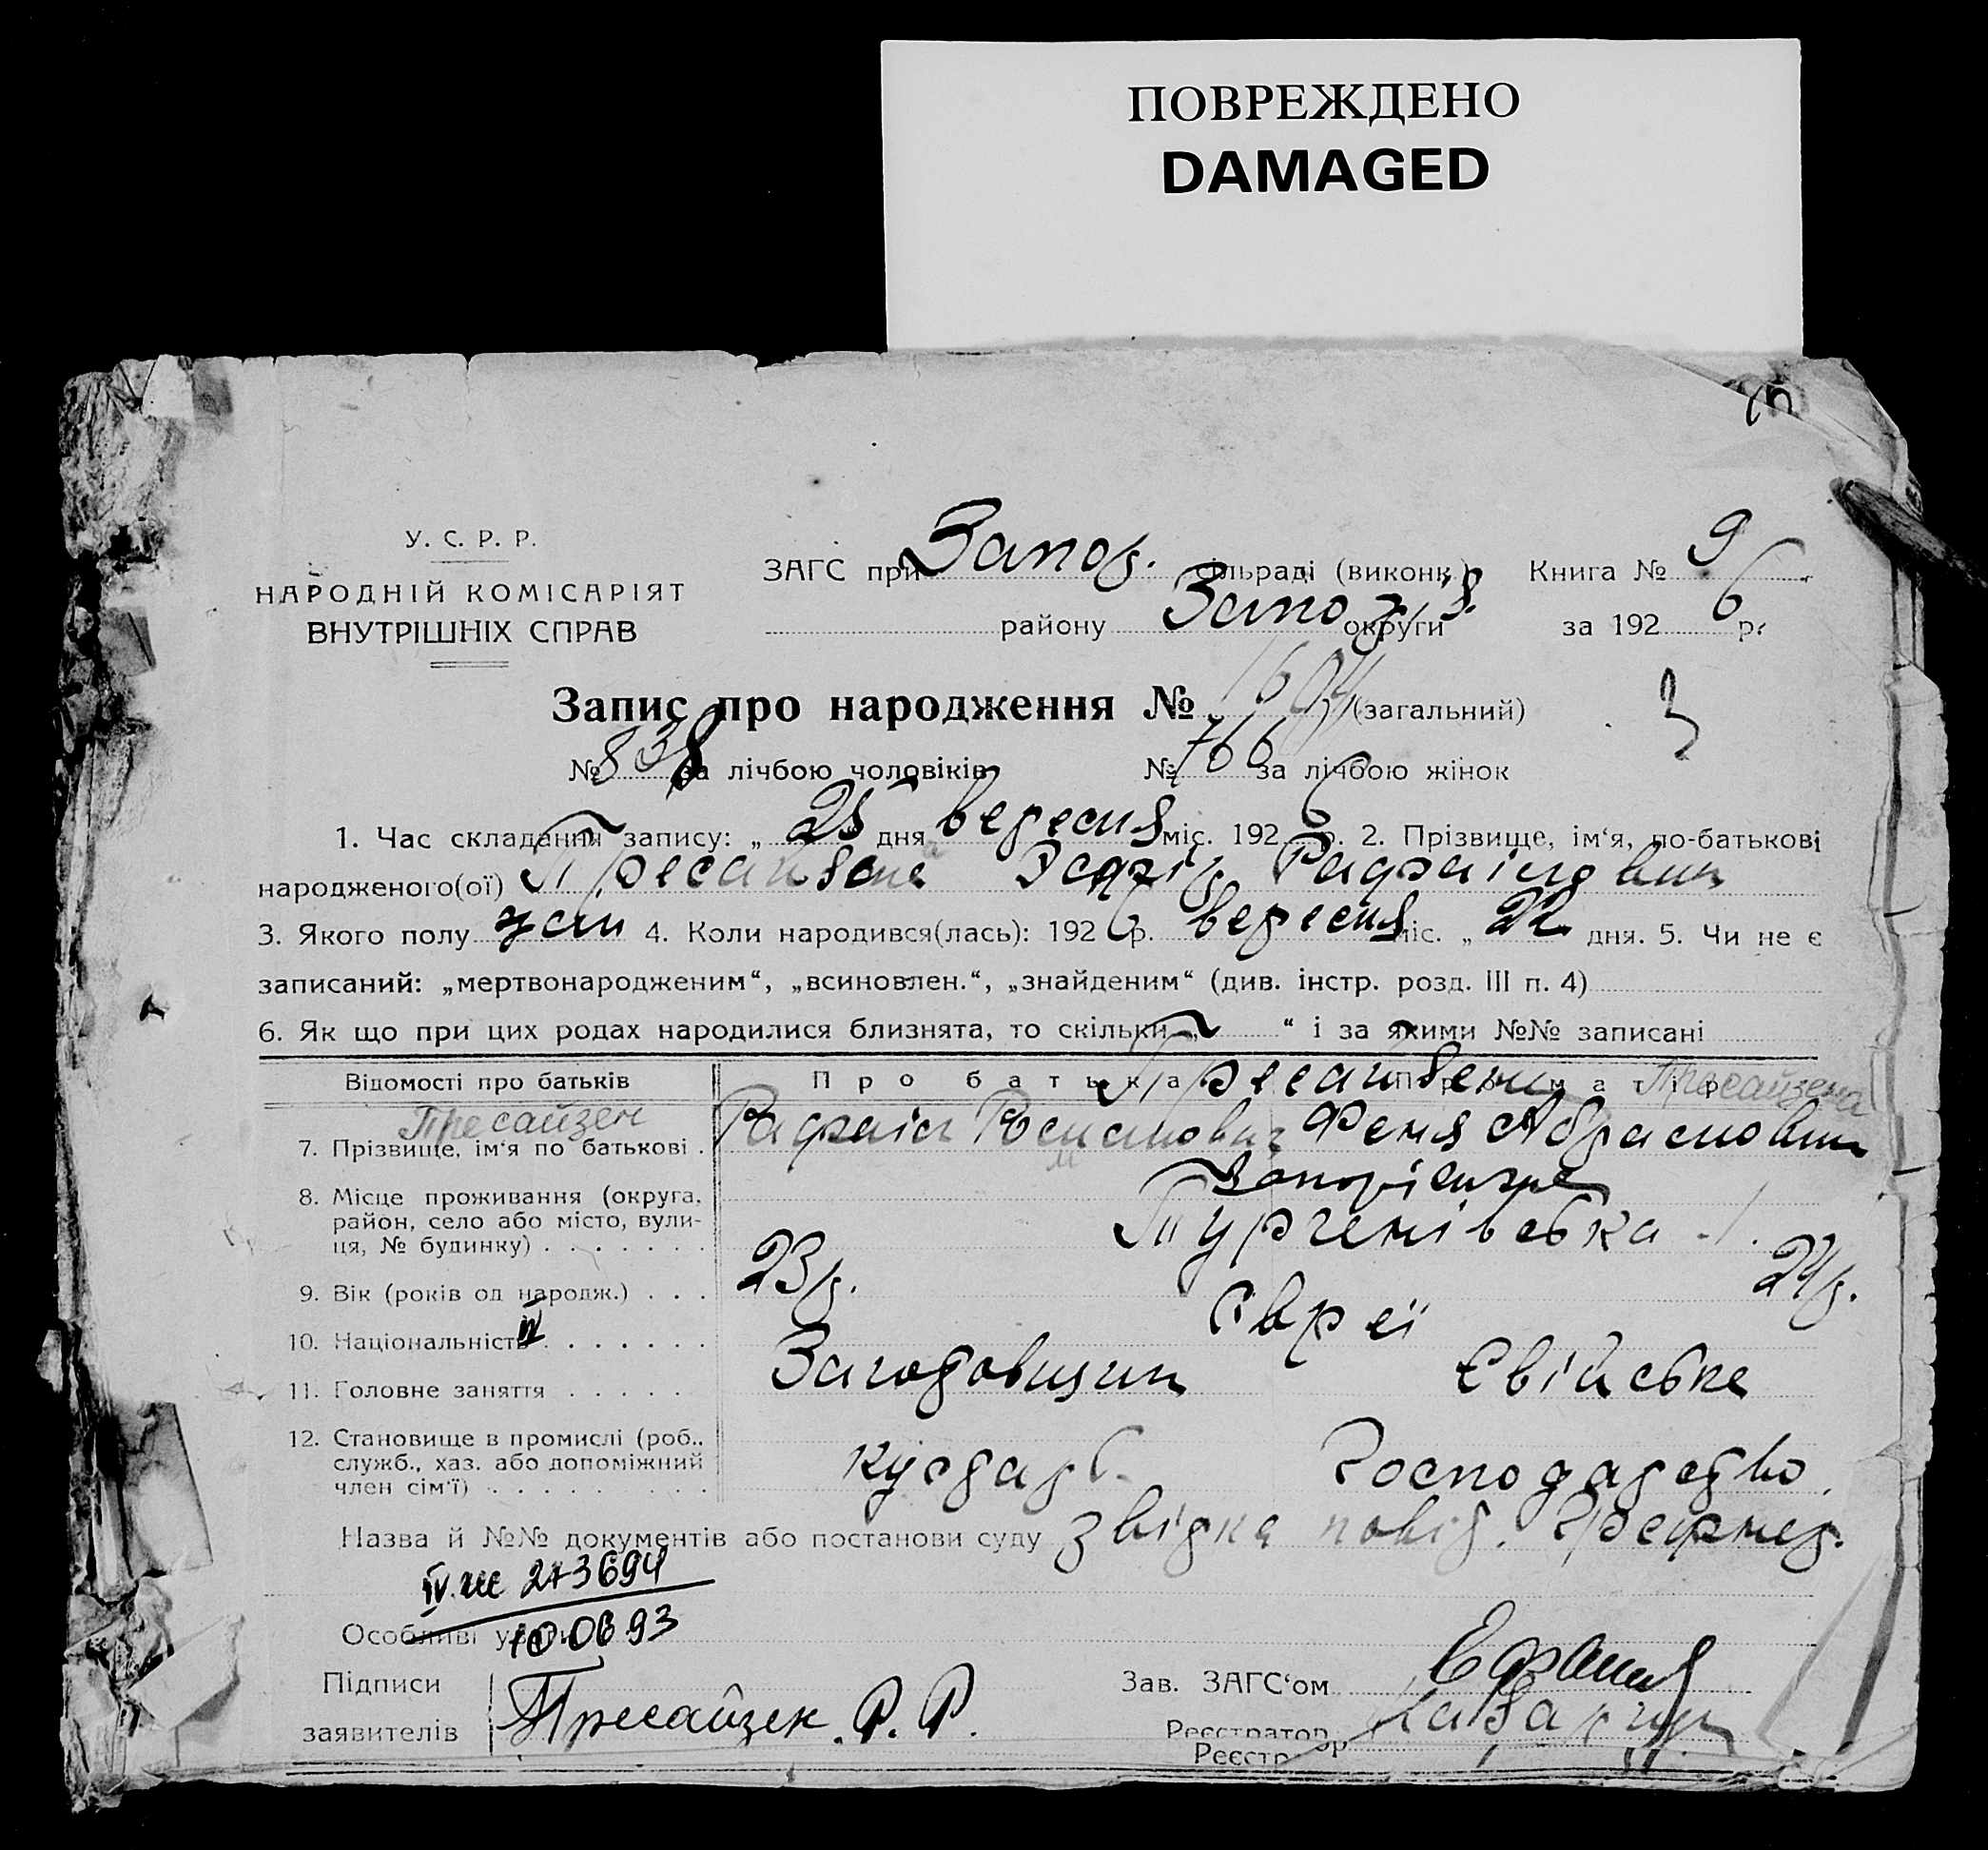 ПОВРЕЖДЕНО
DAMAGED
У. С. Р. Р.
НАРОДНІЙ КОМІСАРІЯТ
ВНУТРІШНІХ СПРАВ
ЗАГС при Запор. сільраді (виконк.) Книга № 9
району Запоріз. округи за 1926 р.
Запис про народження № 1604 (загальний)
3
№ 838 за лічбою чоловіків № 766 за лічбою жінок
1. Час складання запису: „ 25 дня вересня міс. 1926 р. 2. Прізвище, ім‘я, по-батькові
народженого(ої) Пресайзена Рафаіловна
3. Якого полу жін 4. Коли народився(лась): 1926 р. вересня міс. „ 22 дня. 5. Чи не є
записаний: „мертвонародженим“, „всиновлен.“, „знайденим“ (див. інстр. розд. III п. 4)
6. Як що при цих родах народилися близнята, то скільки „ “ і за якими №№ записані
Відомості про батьків Про батька Про матір
Пресайзен Пресайзени Пресайзена
7. Прізвище, ім‘я по батькові . Рафаіл Романович Феня Абрамовна
8. Місце проживання (округа, Запоріжжє
район, село або місто, вули-
ця, № будинку) . . . . . . . Тургенівська 1.
9. Вік (років од народж.) . . . 23 р. 24 р.
10. Національність . . . . . . . Євреї
11. Головне заняття . . . . . Заготовщик Євійське
12. Становище в промислі (роб.,
служб., хаз. або допоміжний кустар Господарство
член сім‘ї) . . . . . . . . .
Назва й №№ документів або постанови суду
IV. же 273694
Особливі уваги
10 06 93
Підписи
заявителів Пресайзен Р. Р.
Зав. ЗАГС‘ом
Реєстратор
Реєстр ор